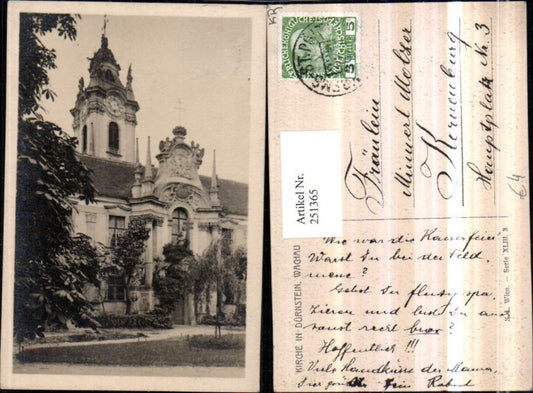 KR
5 5
ST. P
Artikel Nr.
251365
Fräulein
Minnerl Melzer
Korneuburg
Hauptplatz Nr. 3
64
KIRCHE IN DÜRNSTEIN, WACHAU
Wien. – Serie XLIII. 3
Wie war die Kaiserfeier?
Warst Du bei der Feld-
messe?
Gehst Du fleißig spa-
zieren und bist Du auch
sonst recht brav?
Hoffentlich!!!
Viele Handküsse der Mama,
Dein Robert